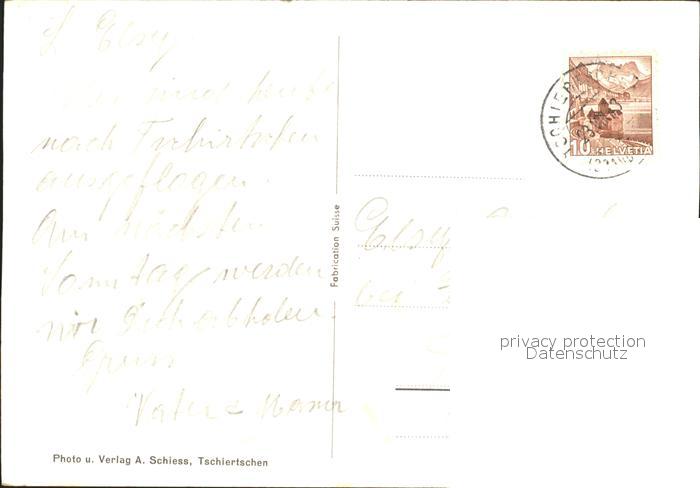 L. Elsy
Wir sind heute
nach Tschiertschen
ausgeflogen.
Am nächsten
Sonntag werden
wir Dich abholen.
Gruss
Vater & Mama
Photo u. Verlag A. Schiess, Tschiertschen
Fabrication Suisse
10 HELVETIA
Elsy
bei
privacy protection
Datenschutz